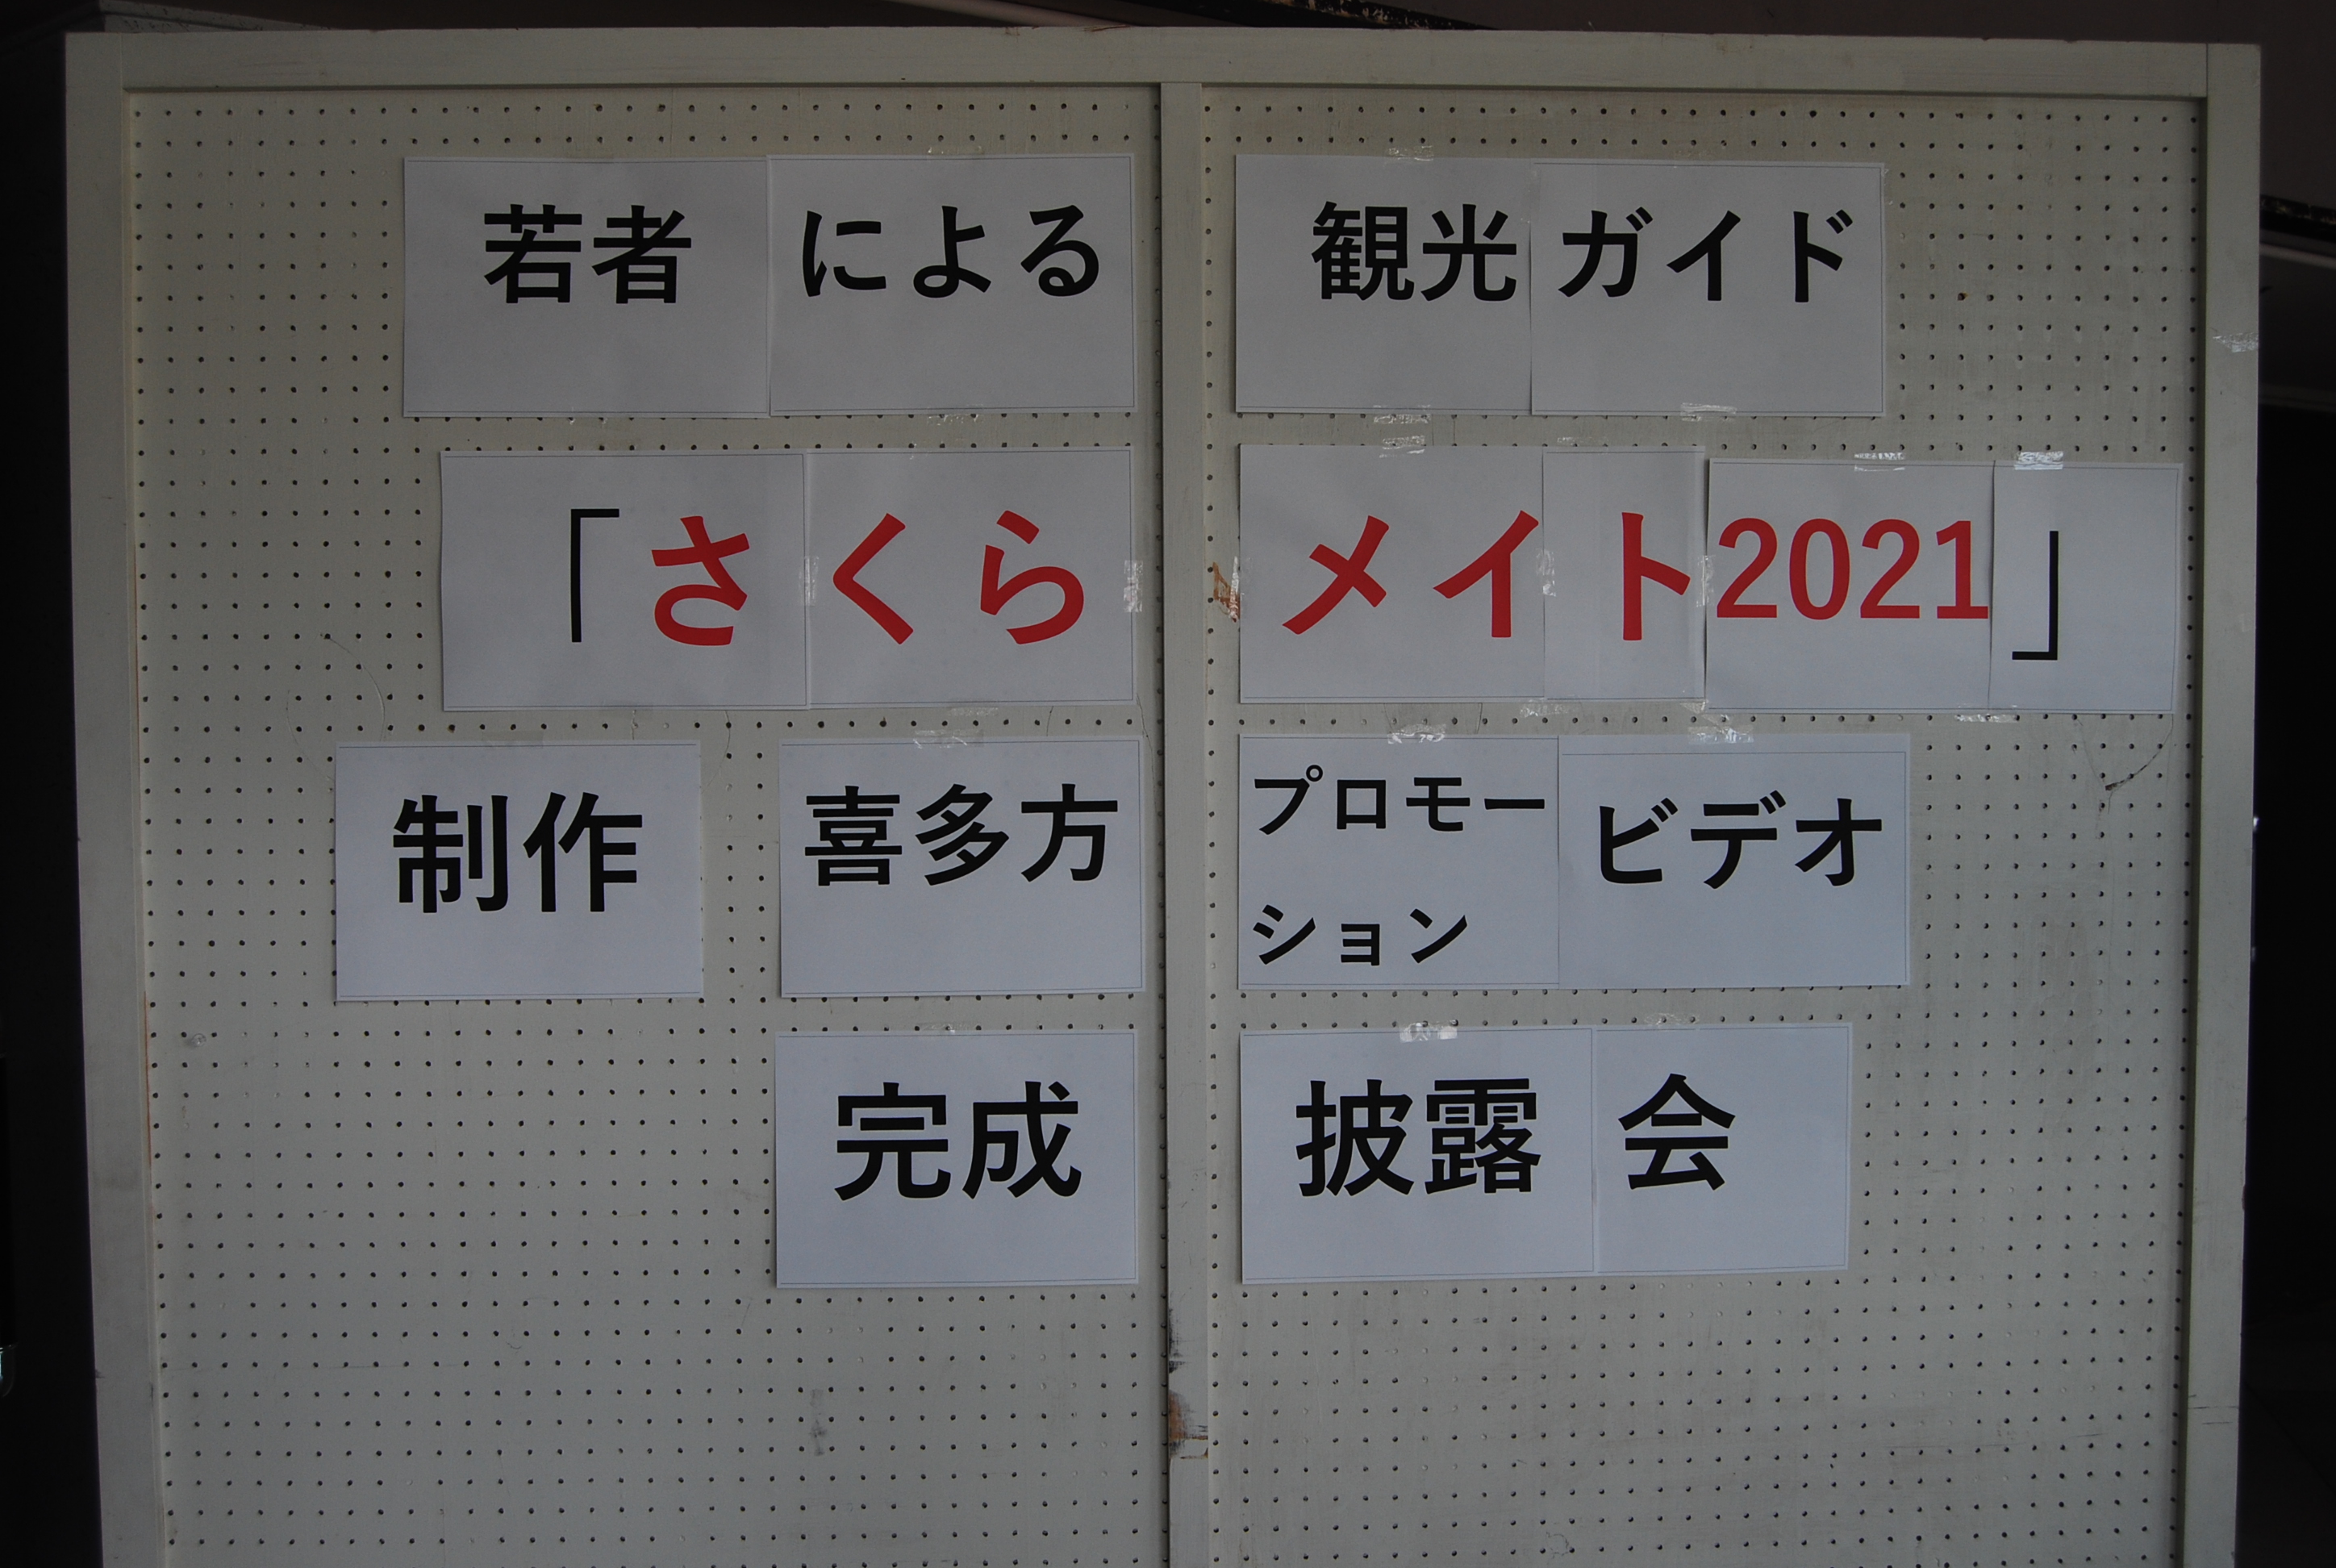 若者による観光ガイド
「さくらメイト2021」
制作 喜多方プロモーションビデオ
完成披露会